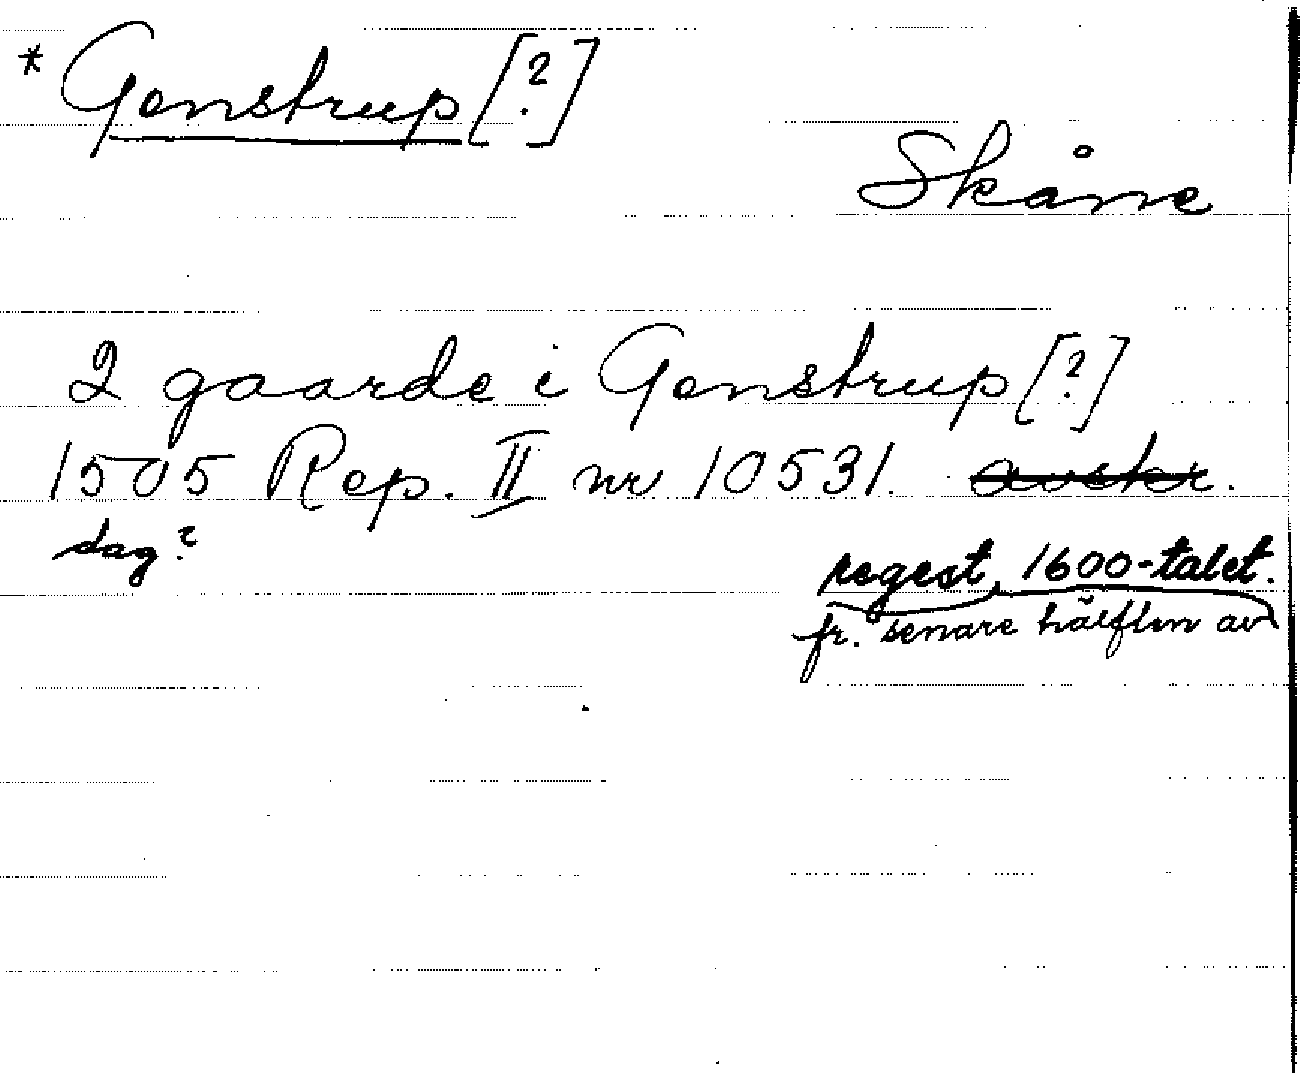 * Genstrup [?]
Skåne
2 gaarde i Genstrup [?]
1505 Rep. II nr 10531. avskr.
dag?
regest 1600-talet.
fr. senare hälften av